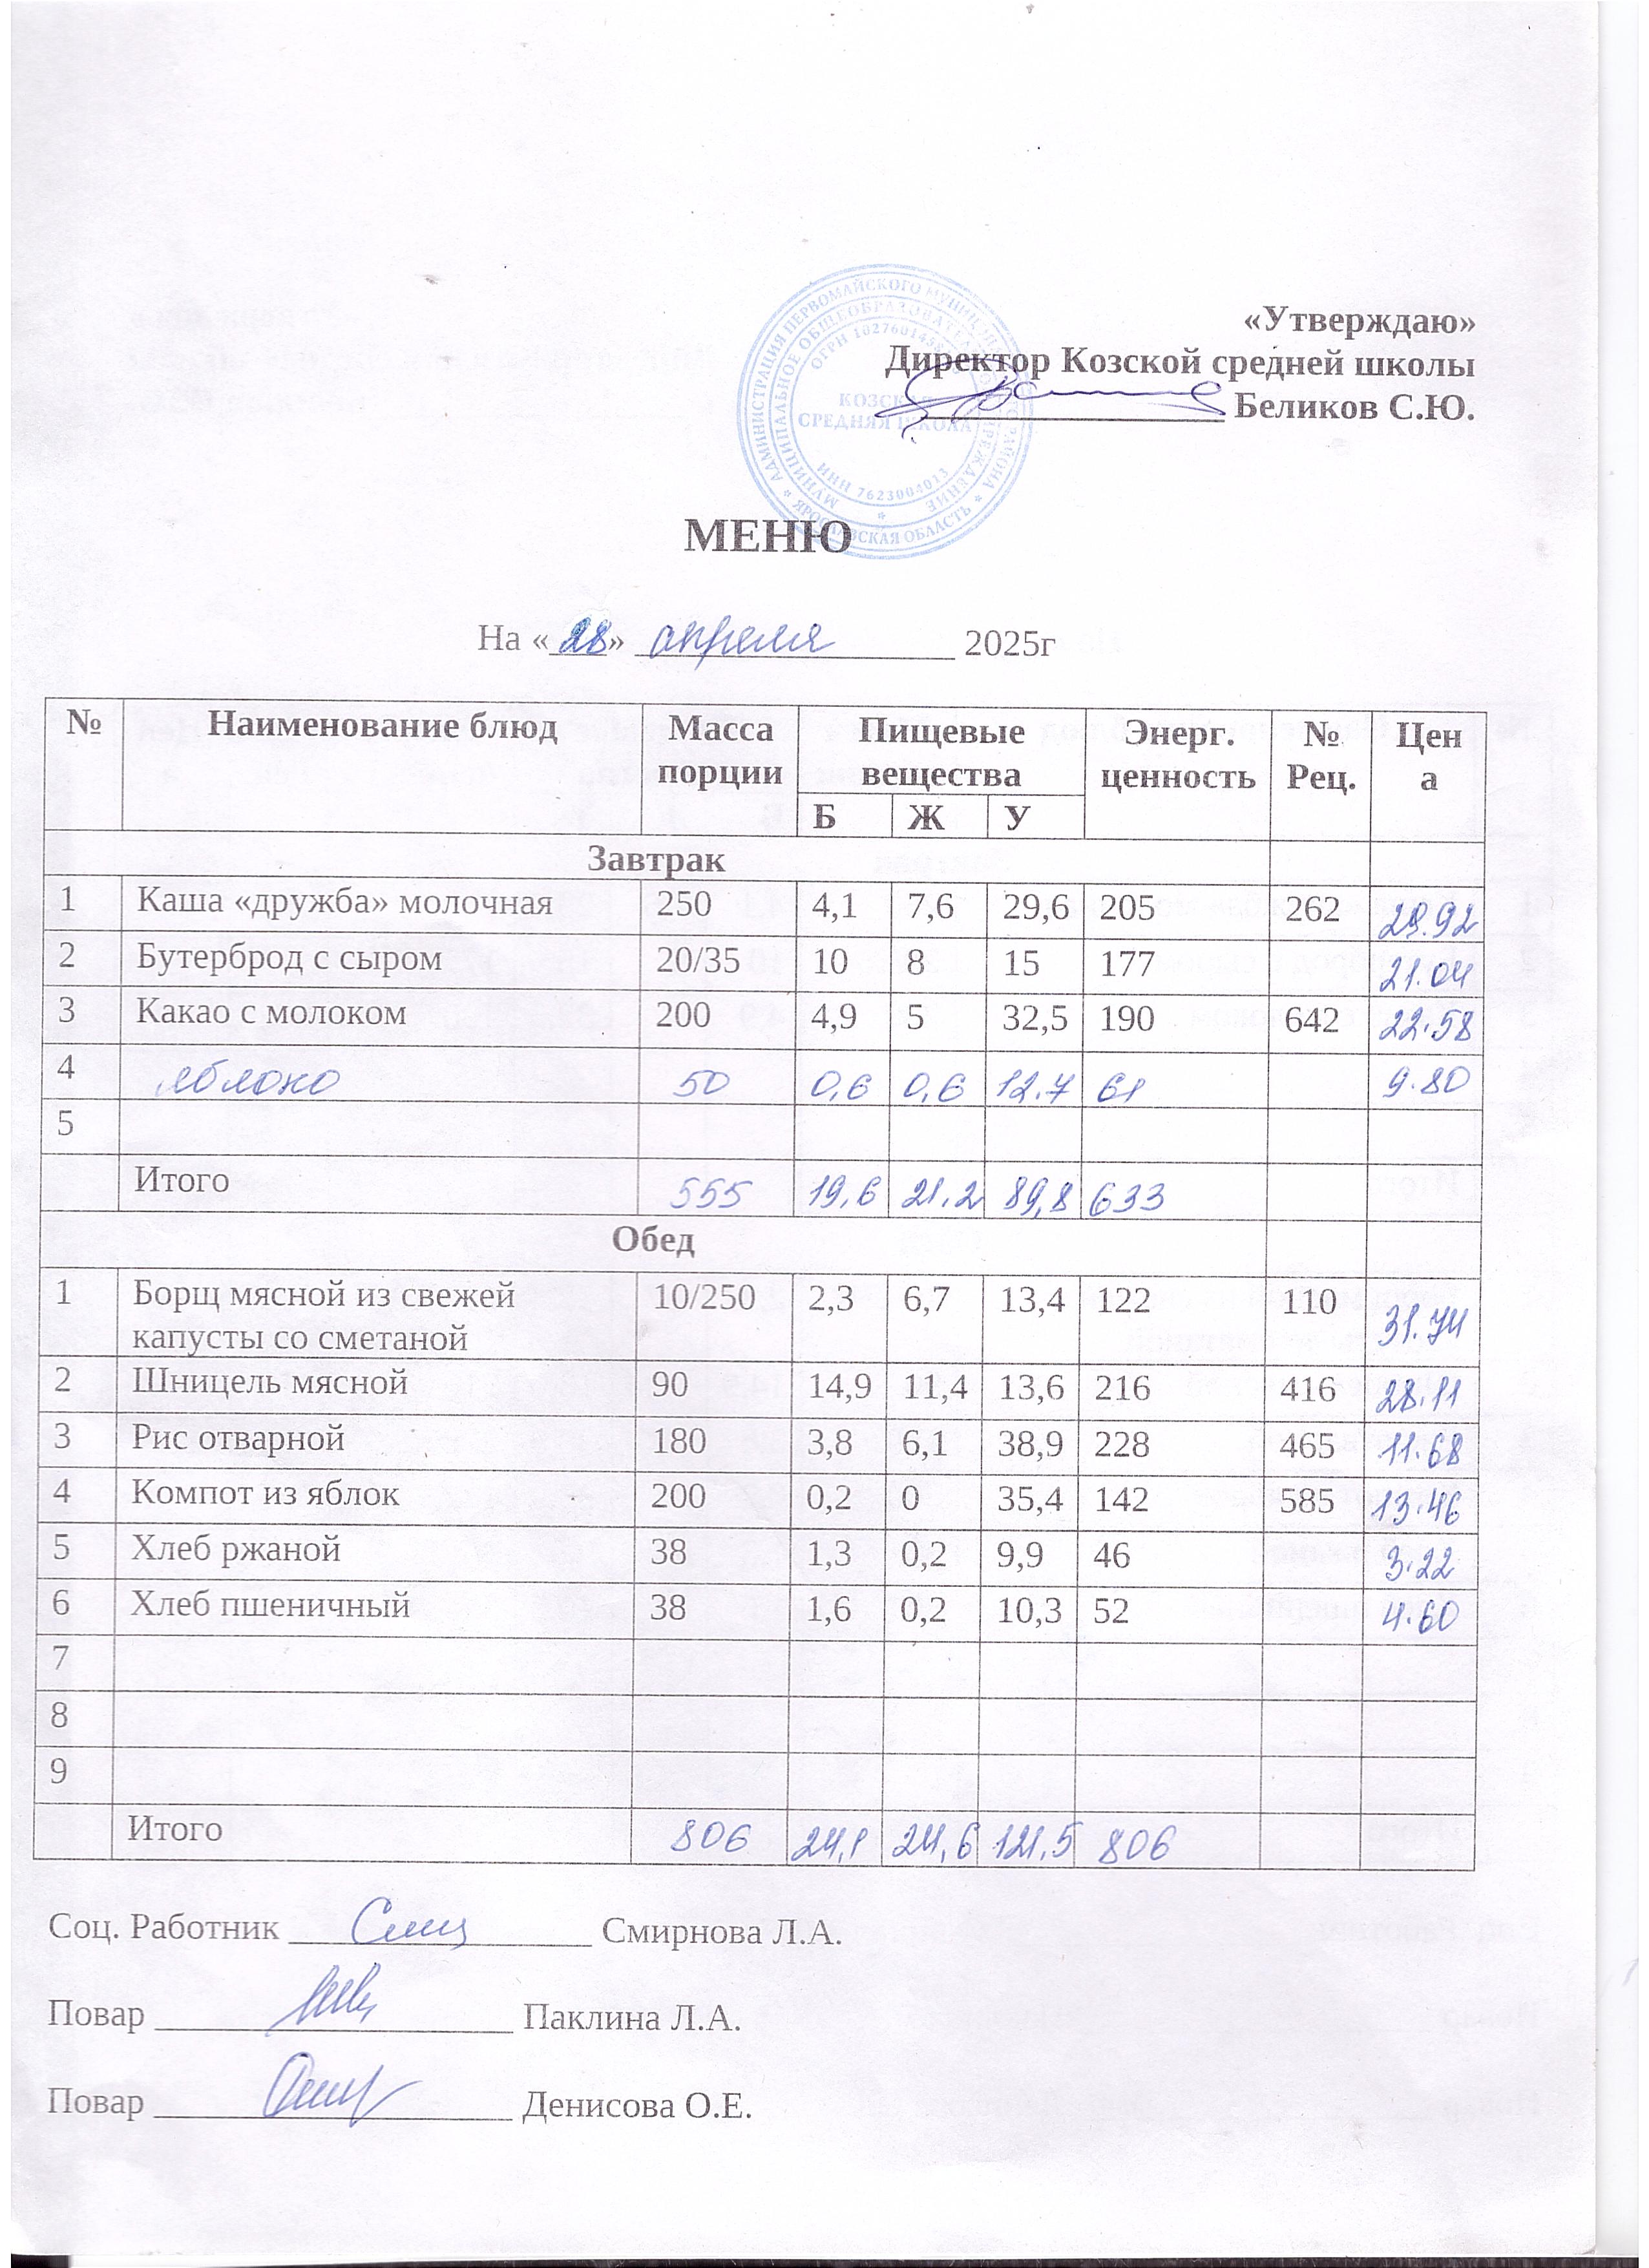 «Утверждаю»
Директор Козской средней школы
Беликов С.Ю.
АДМИНИСТРАЦИЯ ПЕРВОМАЙСКОГО МУНИЦИПАЛЬНОГО РАЙОНА * ЯРОСЛАВСКАЯ ОБЛАСТЬ *
МУНИЦИПАЛЬНОЕ ОБЩЕОБРАЗОВАТЕЛЬНОЕ УЧРЕЖДЕНИЕ *
ОГРН
КОЗСКАЯ
СРЕДНЯЯ ШКОЛА
ИНН 7623004013
МЕНЮ
На «28» апреля 2025г
№ Наименование блюд Масса порции Пищевые вещества Энерг. ценность № Рец. Цена
Б Ж У
Завтрак
1 Каша «дружба» молочная 250 4,1 7,6 29,6 205 262 29.92
2 Бутерброд с сыром 20/35 10 8 15 177 21.04
3 Какао с молоком 200 4,9 5 32,5 190 642 22.58
4 яблоко 50 0,6 0,6 12.7 61 9.80
5
Итого 555 19,6 21.2 89,8 633
Обед
1 Борщ мясной из свежей капусты со сметаной 10/250 2,3 6,7 13,4 122 110 31.74
2 Шницель мясной 90 14,9 11,4 13,6 216 416 28.11
3 Рис отварной 180 3,8 6,1 38,9 228 465 11.68
4 Компот из яблок 200 0,2 0 35,4 142 585 13.46
5 Хлеб ржаной 38 1,3 0,2 9,9 46 3.22
6 Хлеб пшеничный 38 1,6 0,2 10,3 52 4.60
7
8
9
Итого 806 24,1 24,6 121.5 806
Соц. Работник Смирнова Л.А.
Повар Паклина Л.А.
Повар Денисова О.Е.